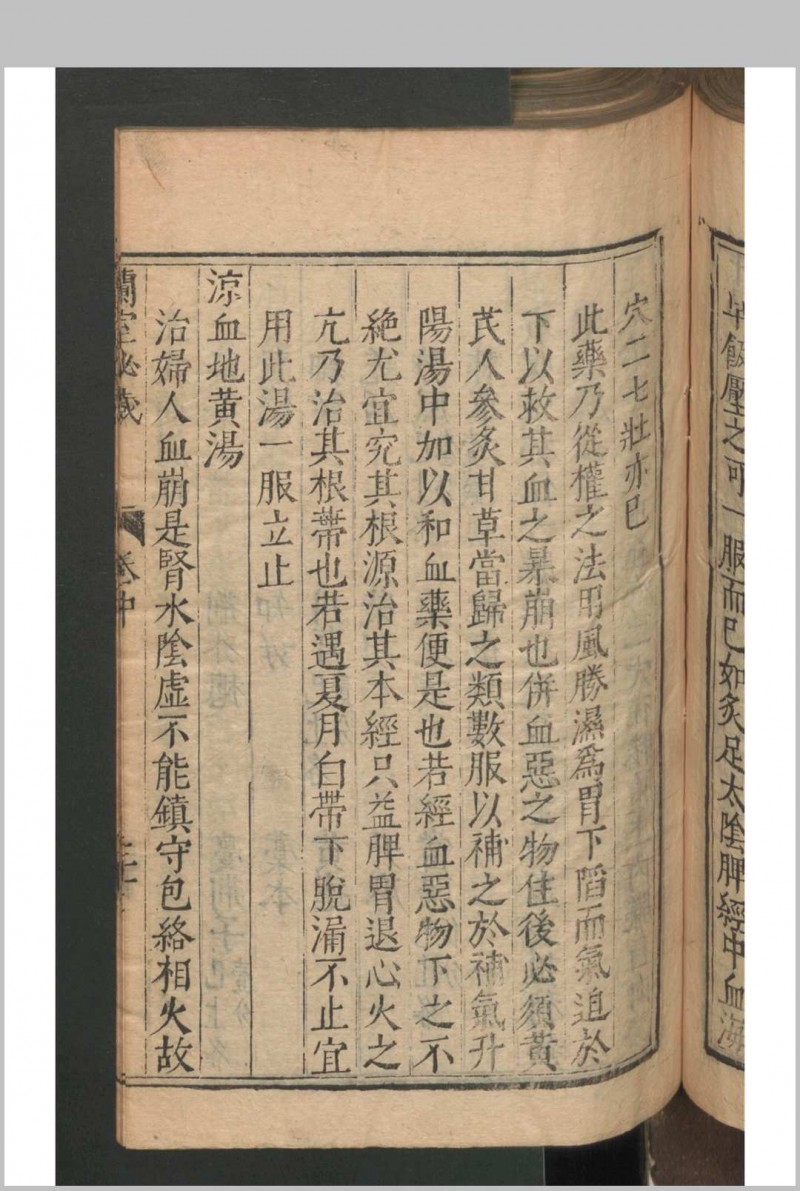 早飯壓之可一服而已如灸足太陰脾經中血海
穴二七壯亦已
此藥乃從權之法用風勝濕爲胃下䧟而氣迫於
下以救其血之暴崩也併血惡之物住後必須黃
芪人參炙甘草當歸之類數服以補之於補氣升
陽湯中加以和血藥便是也若經血惡物下之不
絶尤宜究其根源治其本經只益脾胃退心火之
亢乃治其根蒂也若遇夏月白帶下脫漏不止宜
用此湯一服立止
涼血地黃湯
治婦人血崩是腎水陰虛不能鎮守包絡相火故
蘭室秘藏 卷中